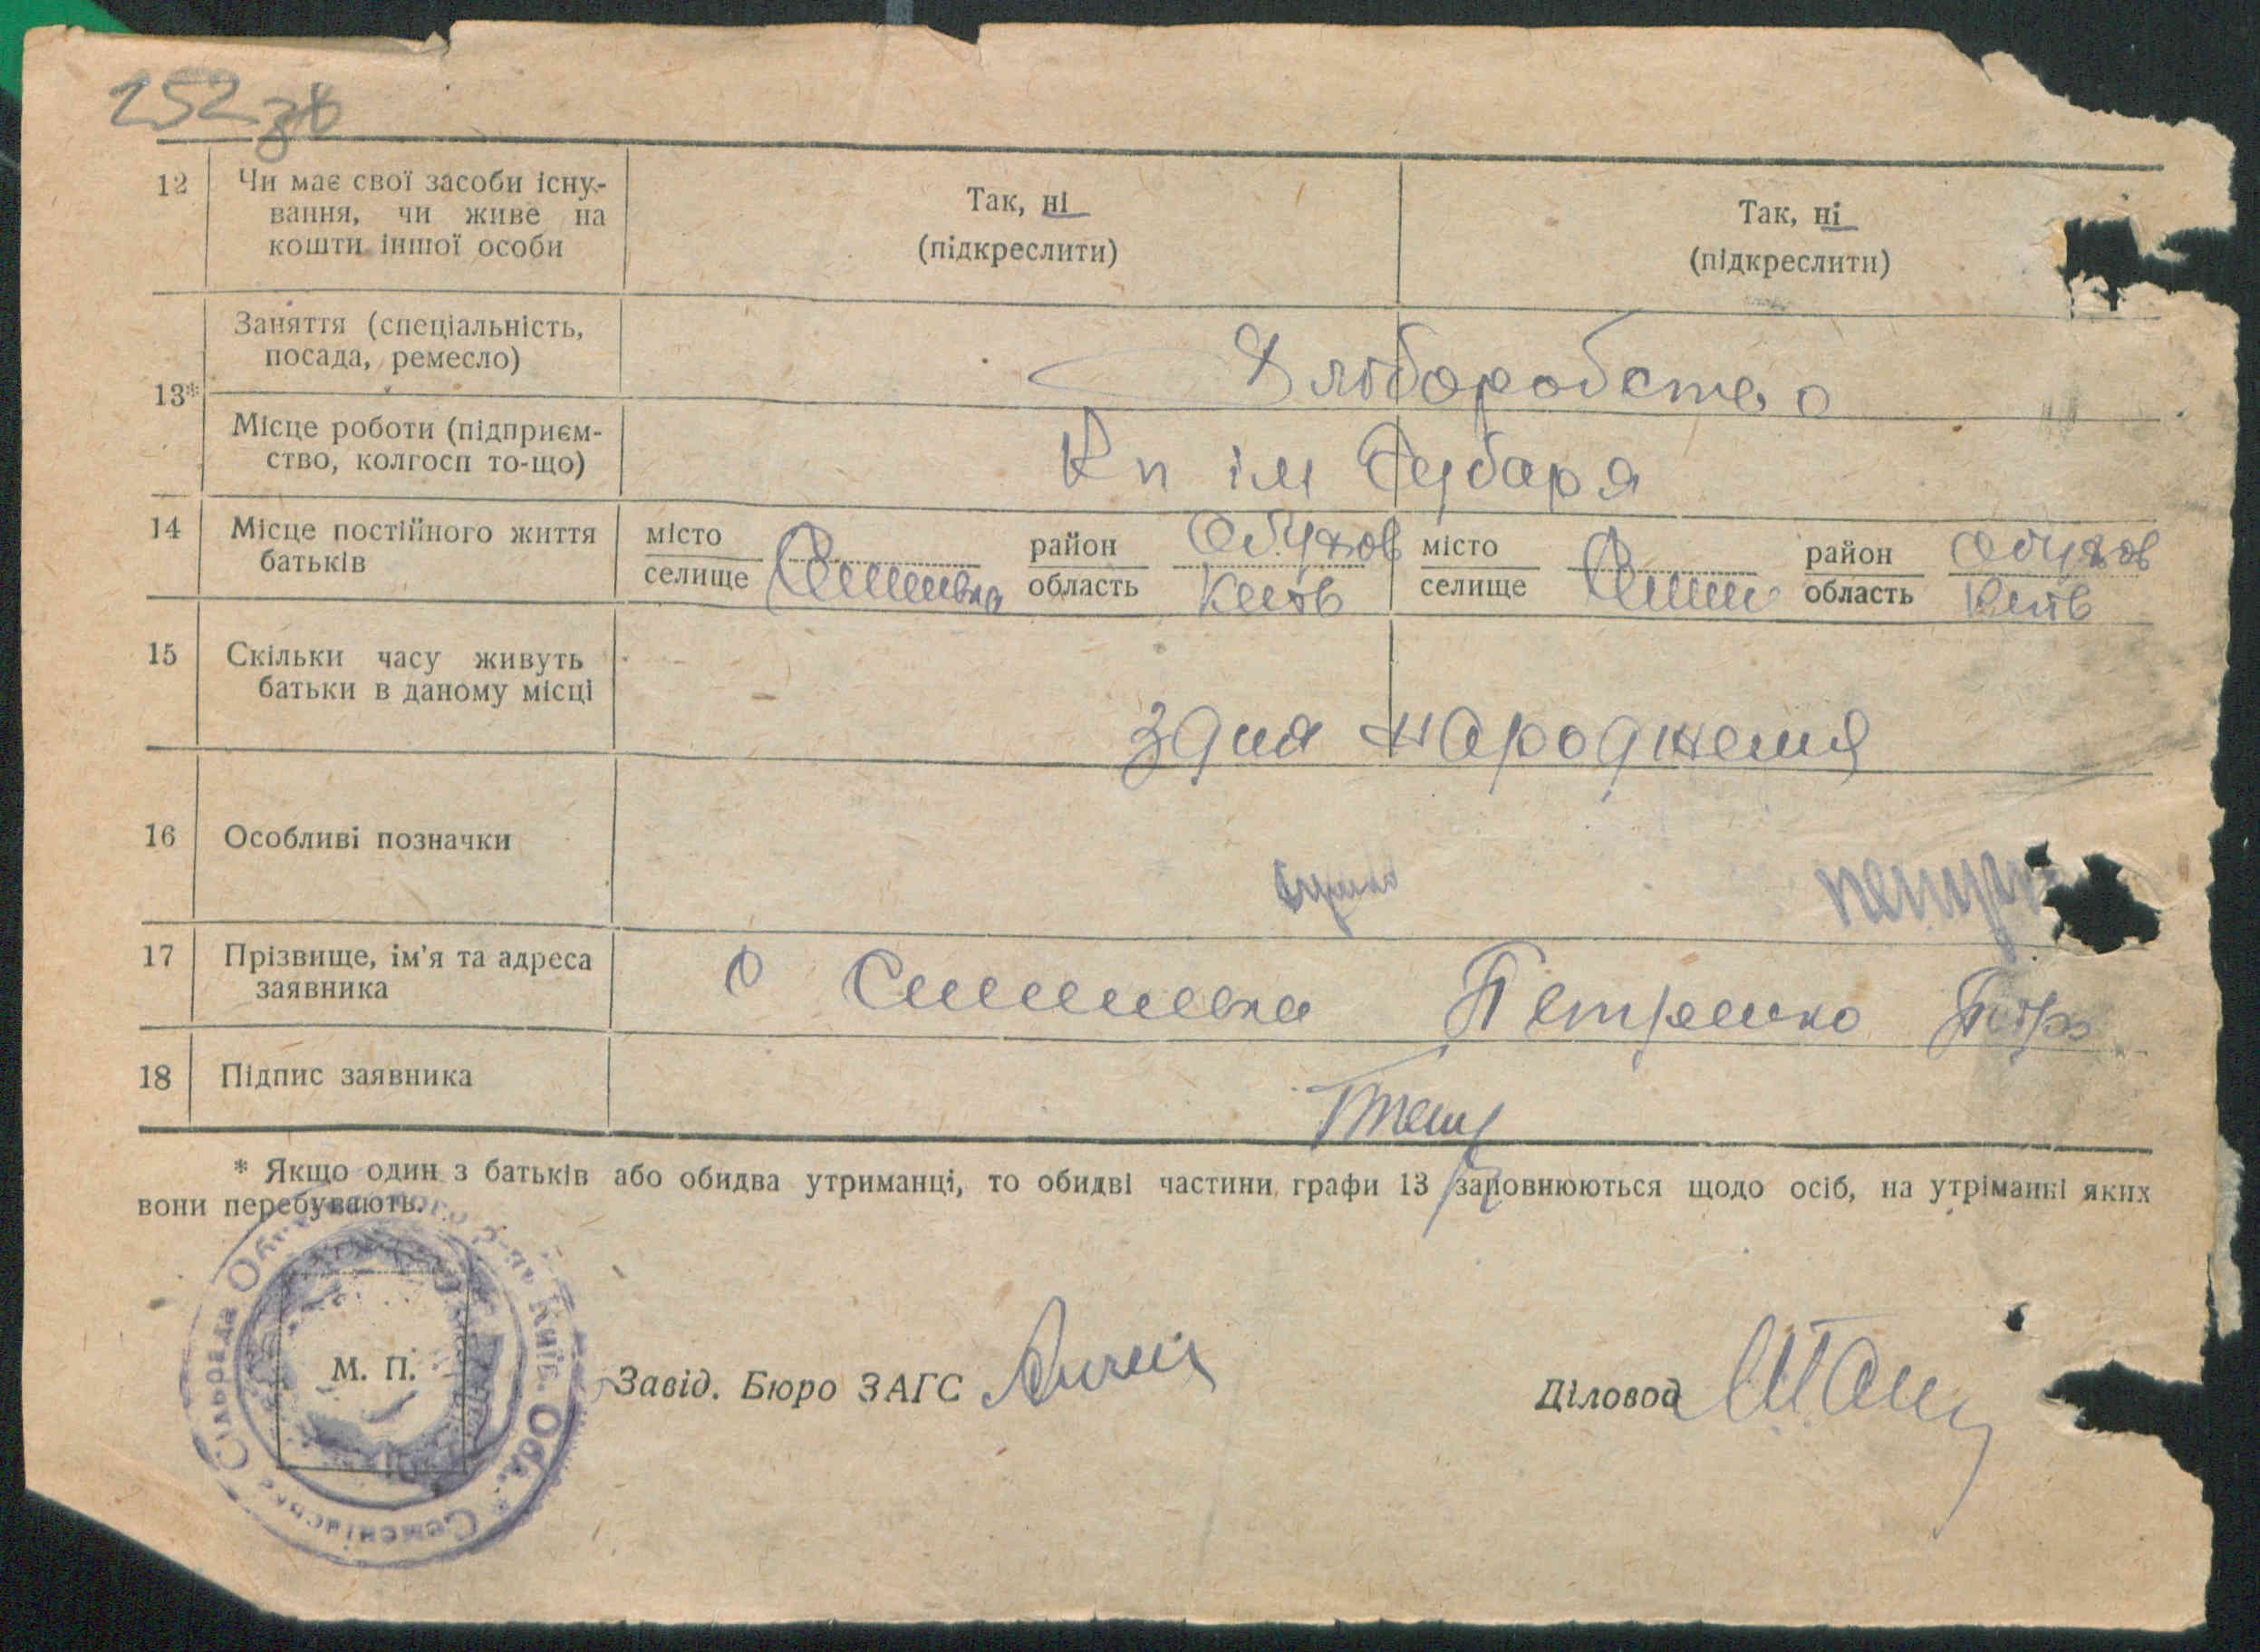 252 зв
12 Чи має свої засоби існу-
вання, чи живе на
кошти іншої особи
Так, ні
(підкреслити)
Так, ні
(підкреслити)
13*
Заняття (спеціальність,
посада, ремесло)
Хліборобство
Місце роботи (підприєм-
ство, колгосп то-що)
Кп ім Чубаря
14 Місце постійного життя
батьків
місто
селище
район Обухов
область Київ
місто
селище
район Обухов
область Київ
15 Скільки часу живуть
батьки в даному місці
з дня народження
16 Особливі позначки
17 Прізвище, ім'я та адреса
заявника
с Петренко Петро
18 Підпис заявника
* Якщо один з батьків або обидва утриманці, то обидві частини графи 13 заповнюються щодо осіб, на утріманні яких
вони перебувають.
Сільрада Київ. Обл. *
М. П.
Завід. Бюро ЗАГС
Діловод